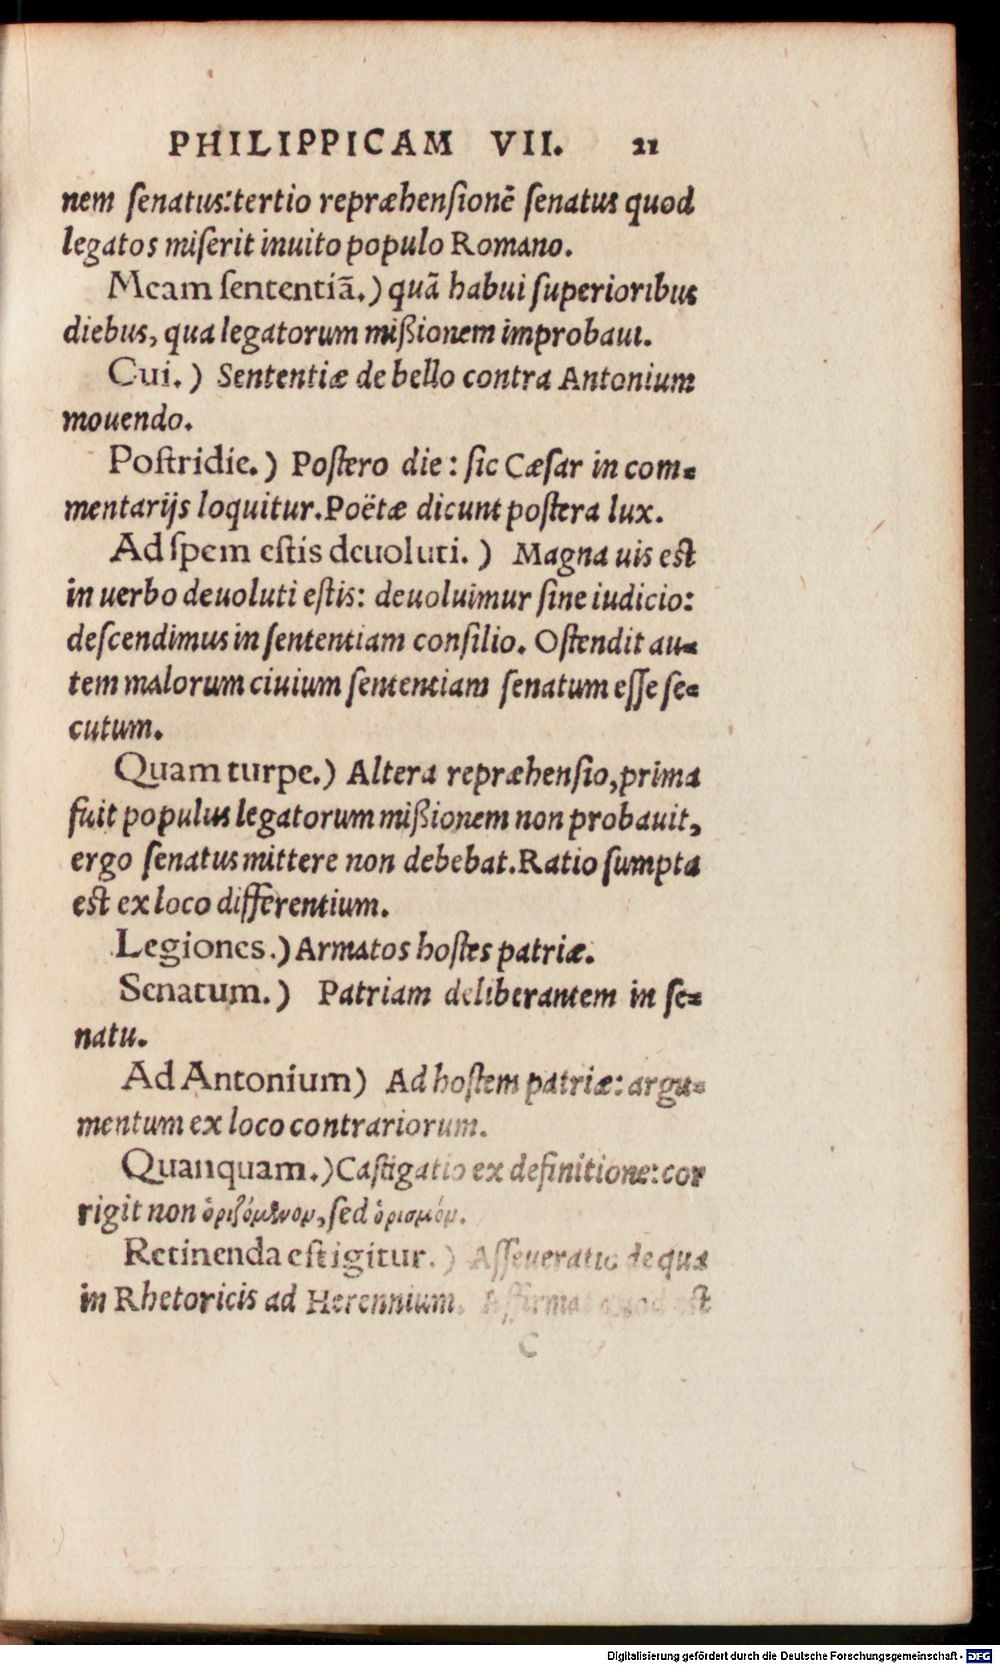 PHILIPPICAM VII. 21
nem senatus: tertio repræhensionē senatus quod
legatos miserit inuito populo Romano.
Meam sententiā.) quā habui superioribus
diebus, qua legatorum mißionem improbaui.
Cui.) Sententiæ de bello contra Antonium
mouendo.
Postridie.) Postero die: sic Cæsar in com-
mentarijs loquitur. Poëtæ dicunt postera lux.
Ad spem estis deuoluti.) Magna uis est
in uerbo deuoluti estis: deuoluimur sine iudicio:
descendimus in sententiam consilio. Ostendit au-
tem malorum ciuium sententiam senatum esse se-
cutum.
Quam turpe.) Altera repræhensio, prima
fuit populus legatorum mißionem non probauit,
ergo senatus mittere non debebat. Ratio sumpta
est ex loco differentium.
Legiones.) Armatos hostes patriæ.
Senatum.) Patriam deliberantem in se-
natu.
Ad Antonium) Ad hostem patriæ: argu-
mentum ex loco contrariorum.
Quanquam.) Castigatio ex definitione: cor
rigit non ὁριζόμενον, sed ὁρισμόν.
Retinenda est igitur.) Asseueratio de qua
in Rhetoricis ad Herennium. Affirmat quod est
C
Digitalisierung gefördert durch die Deutsche Forschungsgemeinschaft - DFG